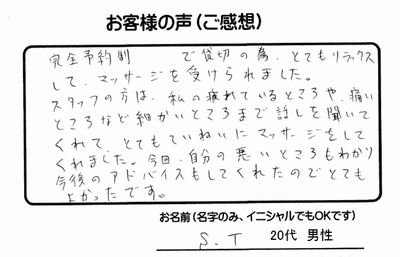 お客様の声(ご感想)
完全予約制　　　で貸切の為、とてもリラックス
して、マッサージを受けられました。
スタッフの方は、私の疲れているところや、痛い
ところなど細かいところまで話しを聞いて
くれて、とてもていねいにマッサージをして
くれました。今回、自分の悪いところもわかり
今後のアドバイスもしてくれたのでとても
よかったです。
お名前(名字のみ、イニシャルでもOKです)
S.T　20代　男性